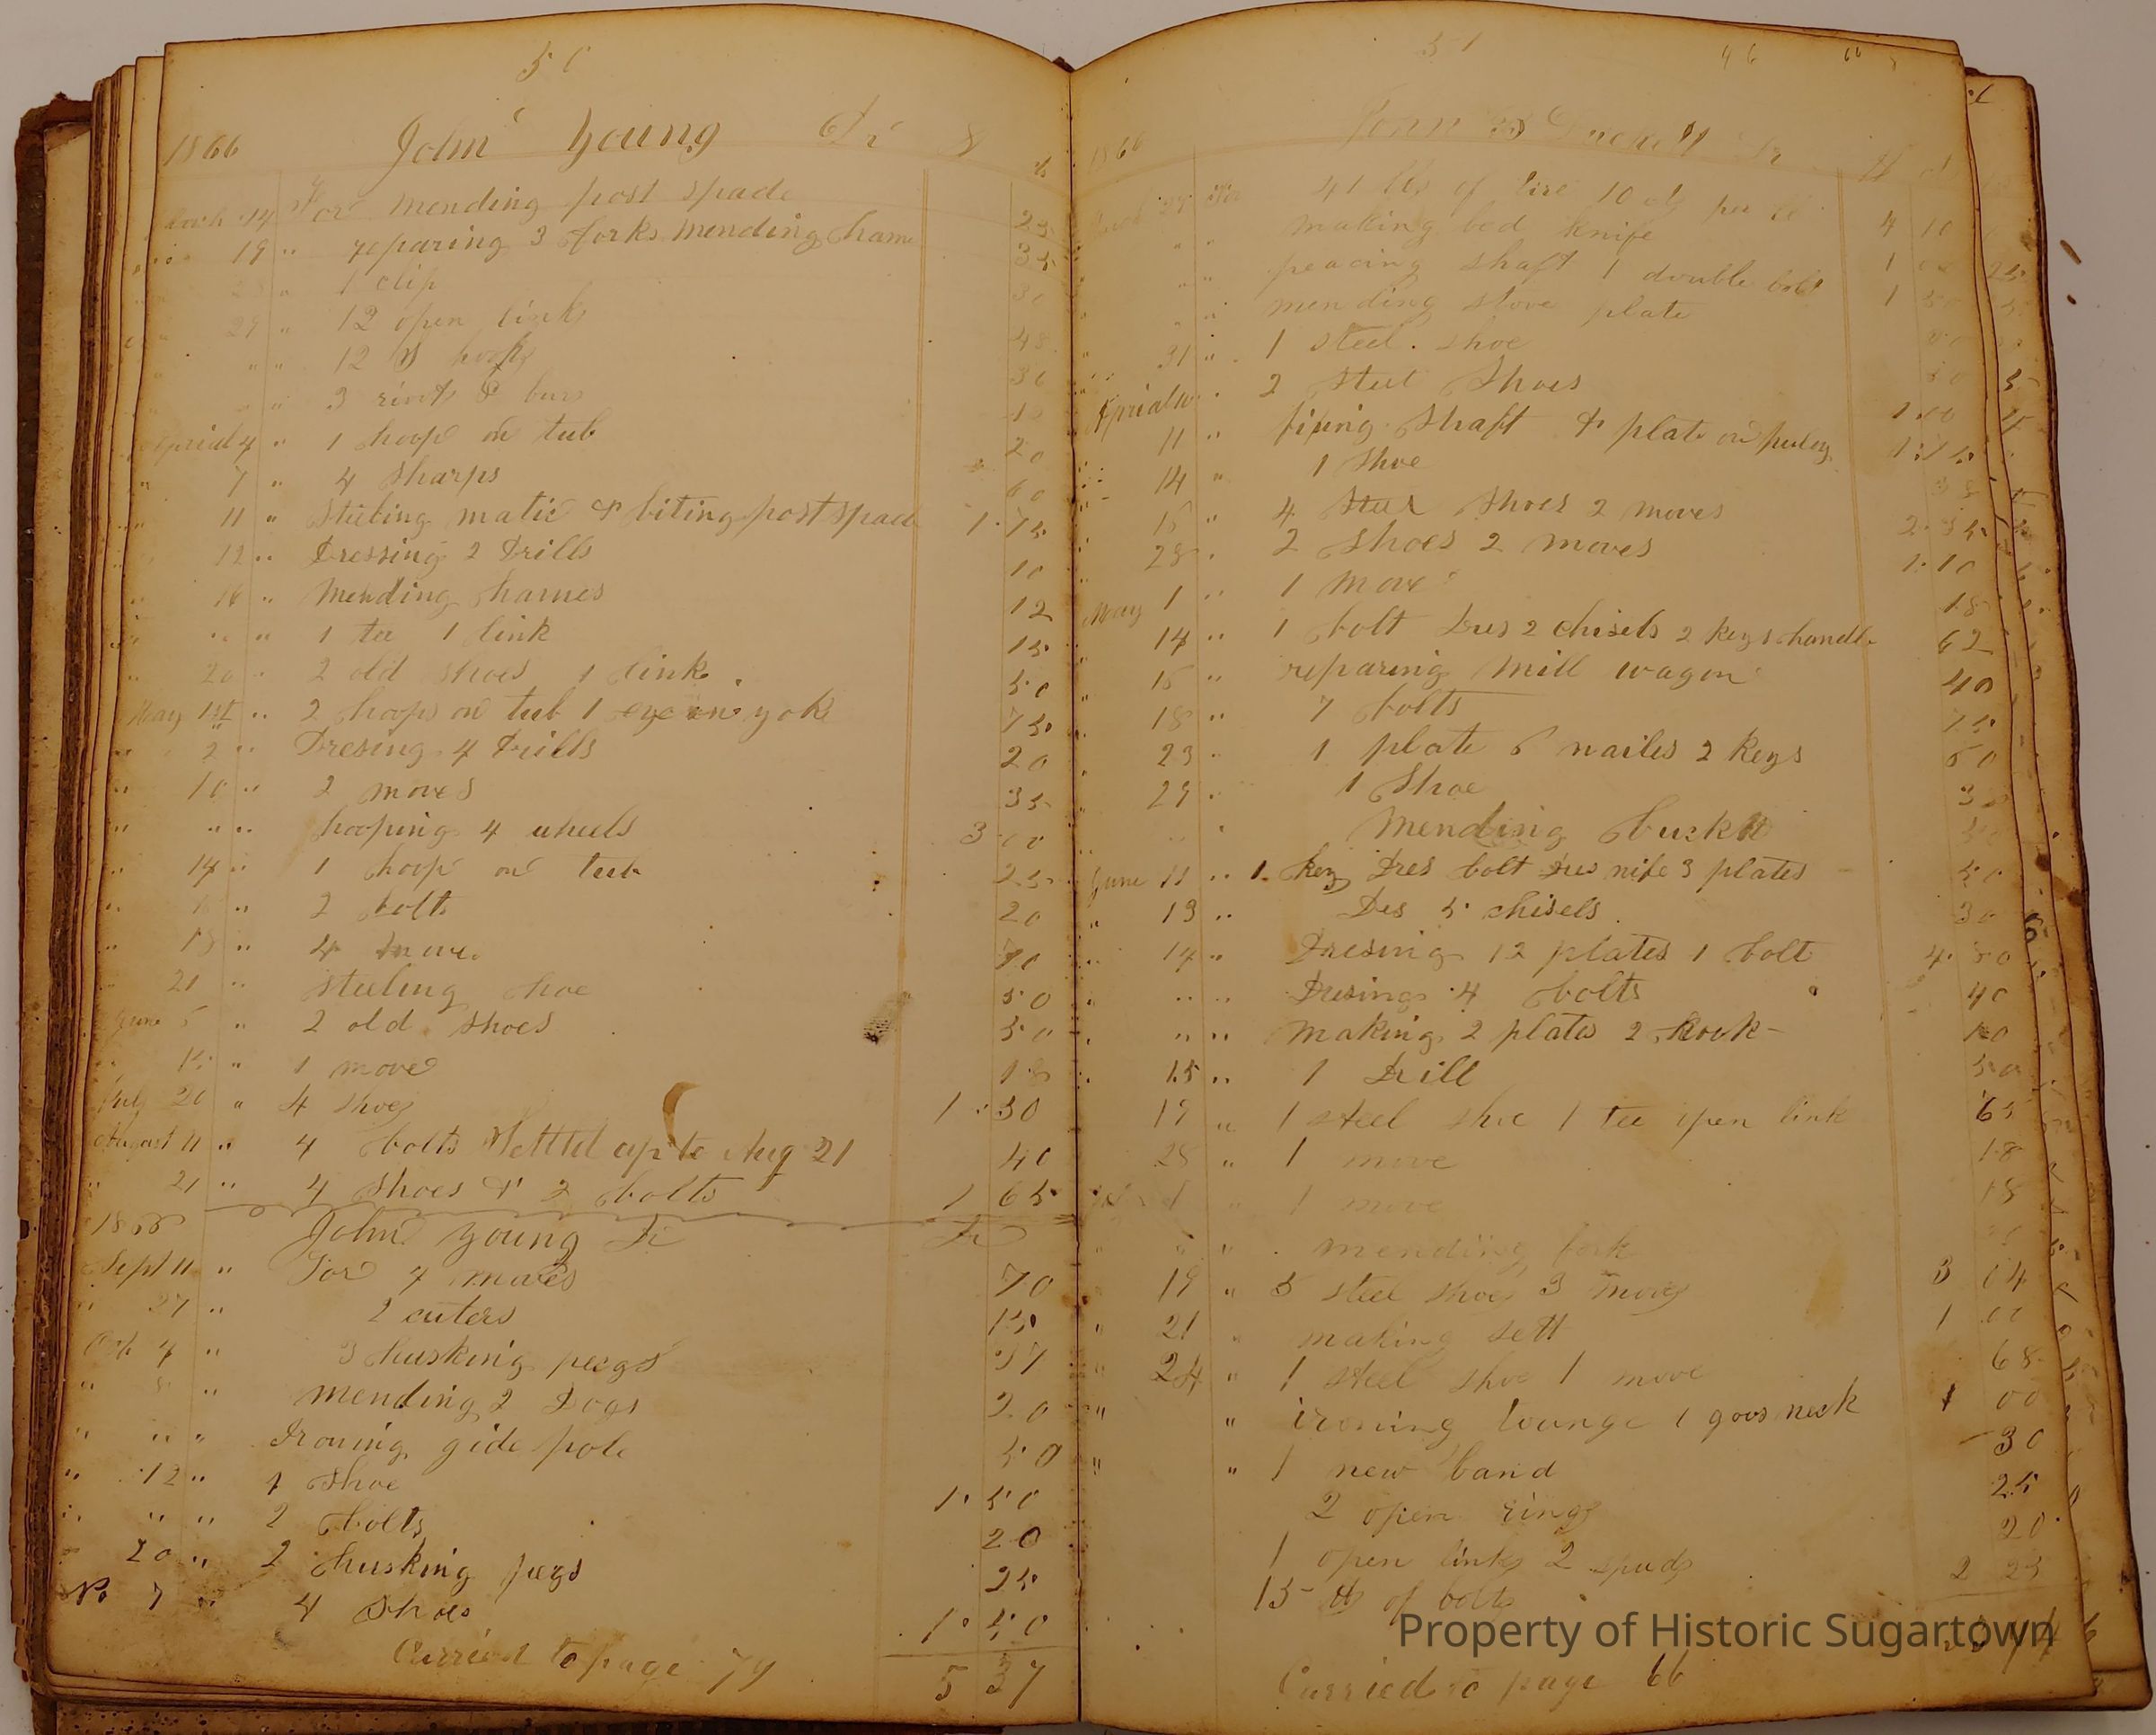 50
1866 John Young Dr $
14 For mending post spade 25
19 " reparing 3 forks mending hame 35
" 1 clip 30
29 " 12 open links 48
" " 12 S hooks 36
" " 3 rivets & burs
Aprial 4 " 1 hoop on tub 20
" 7 " 4 sharps 60
" 11 " Steeling matic & biting post spade 1.75
12 " Dressing 2 Drills 10
" 16 " Mending harnes 12
" " " 1 tee 1 link 15
" 20 " 2 old shoes 1 link 50
May 1st " 2 hoops on tub 1 eye in yok 75
" 2 " Dresing 4 Drills 20
" 10 " 2 moves 35
" " " hooping 4 wheels 3 00
" 14 " 1 hoop on tub 25
" " 2 bolts 20
" " 4 move 70
21 " steeling hoe 50
June 5 " 2 old shoes 50
" " 1 move 18
July 20 " 4 shoes 1.50
August 11 " 4 bolts Settled up to Aug 21 40
" 21 " 4 Shoes & 2 bolts 1 65
John Young Dr
Sept 11 " For 4 moves 70
" 27 " 2 cuters 15
Oct 4 " 3 husking peegs 37
" 8 " mending 2 Dogs 20
" " " Ironing gide pole 50
" 12 " 4 Shoe 1.50
" " " 2 bolts 20
" 20 " 2 husking peegs 25
No 7 " 4 Shoes 1.50
Carried to page 79 5 37
51 46 66
1866 John Dr
41 lbs of tire 10 cts per lb 4 10
" " making bed knife 1 00
" " peacing shaft 1 double bolt 1 50
" " mending stove plate
" 31 " 1 steel shoe 50
Aprial 10 " 2 Steel Shoes 1.00
11 " fixing Shaft & plate on puley
14 " 1 Shoe 38
15 " 4 Steel Shoes 2 moves 2.35
28 " 2 shoes 2 moves 1.10
May 1 " 1 move 18
" 14 " 1 bolt Dres 2 chisels 2 keys 1 handle 62
" 15 " reparing Mill wagon 40
" 18 " 7 bolts 75
" 23 " 1 plate 6 nailes 2 keys 60
" 29 " 1 Shoe 38
" " Mending bucket
June 11 " 1 key Dres bolt Dres nife 3 plates 50
" 13 " Des 5 chisels 30
" 14 " Dresing 12 plates 1 bolt 4.50
" " " Dresing 4 bolts 40
" " " making 2 plates 2 hook
" 15 " 1 Drill 50
19 " 1 steel shoe 1 tee open link 65
28 " 1 move 18
1 " 1 move 18
" " " mending fork
19 " 5 steel shoes 3 moves 3 04
" 21 " making sett 1 00
" 24 " 1 steel shoe 1 move 68
" " ironing lounge 1 goos neck 1 00
" " 1 new band 30
2 open rings 25
1 open link 2 spuds 20
15 lb of bolts 2 25
Property of Historic Sugartown
Carried to page 66